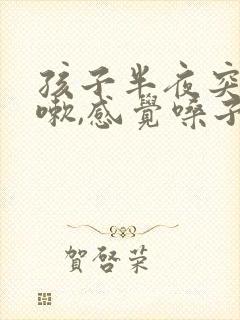 孩子半夜突
嗽,感覺嗓子
賀啓荣